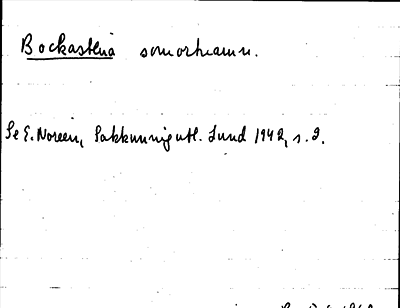 Bockastena somorhamn.
Se E. Noreen, Sakkunnigutl. Lund 1942, s. 9.